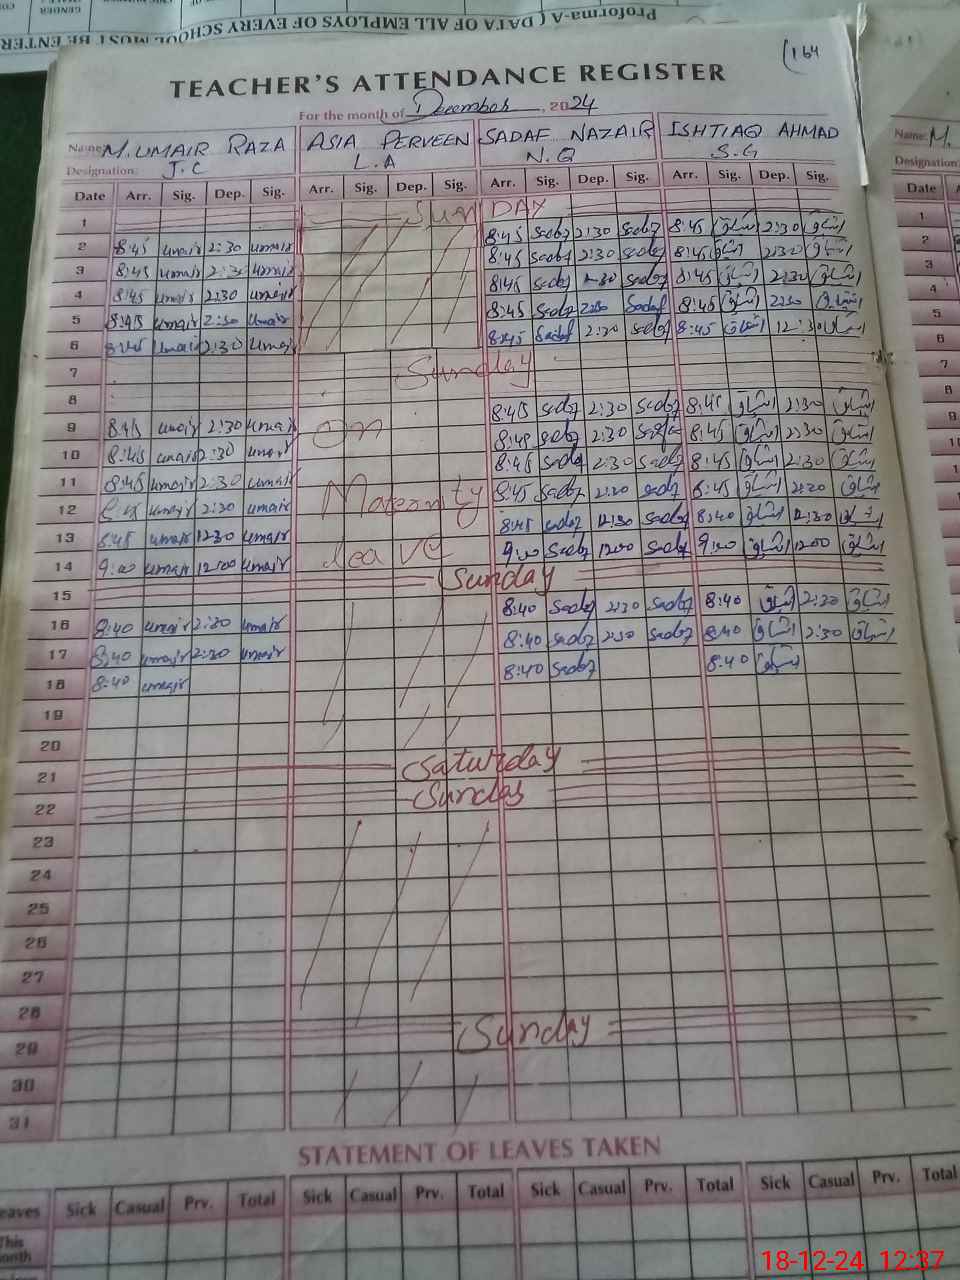 Proforma-A ( DATA OF ALL EMPLOYS OF EVERY SCHOOL MUST BE ENTER
GENDER
(164
TEACHER'S ATTENDANCE REGISTER
For the month of December, 2024
Name: M. UMAIR RAZA ASIA PERVEEN SADAF NAZAIR ISHTIAQ AHMAD
Designation: J.C L.A N.Q S.G
Date Arr. Sig. Dep. Sig. Arr. Sig. Dep. Sig. Arr. Sig. Dep. Sig. Arr. Sig. Dep. Sig.
1 SUN DAY
2 8:45 umair 2:30 umair 8:45 Sadaf 2:30 Sadaf 8:45 2:30
3 8:45 umair 2:30 umair 8:45 Sadaf 2:30 Sadaf 8:45 2:30
4 8:45 umair 2:30 umair 8:45 Sadaf 2:30 Sadaf 8:45 2:30
5 8:45 umair 2:30 umair 8:45 Sadaf 2:30 Sadaf 8:45 2:30
6 8:45 umair 12:30 umair 8:45 Sadaf 2:30 Sadaf 8:45 12:30
7
8 Sunday
9 8:45 umair 2:30 umair on 8:45 Sadaf 2:30 Sadaf 8:45 2:30
10 8:45 umair 2:30 umair 8:45 Sadaf 2:30 Sadaf 8:45 2:30
11 8:45 umair 2:30 umair Maternity 8:45 Sadaf 2:30 Sadaf 8:45 2:30
12 8:45 umair 2:30 umair 8:45 Sadaf 2:30 Sadaf 8:45 2:30
13 8:45 umair 12:30 umair leave 8:45 Sadaf 12:30 Sadaf 8:40 12:30
14 9:00 umair 12:00 umair 9:00 Sadaf 12:00 Sadaf 9:00 12:00
15 Sunday
16 8:40 umair 2:30 umair 8:40 Sadaf 2:30 Sadaf 8:40 2:30
17 8:40 umair 2:30 umair 8:40 Sadaf 2:30 Sadaf 8:40 2:30
18 8:40 umair 8:40 Sadaf 8:40
19
20
21 Saturday
22 Sunday
23
24
25
26
27
28
29 Sunday
30
31
STATEMENT OF LEAVES TAKEN
eaves Sick Casual Prv. Total Sick Casual Prv. Total Sick Casual Prv. Total Sick Casual Prv. Total
This
month
Name: M.
Designation
Date
1
2
3
4
5
6
7
8
9
10
11
18-12-24 12:37